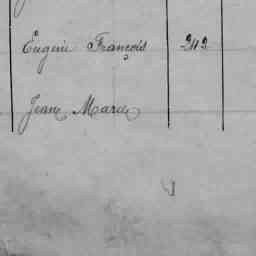 Eugène François 212
Jean Marie